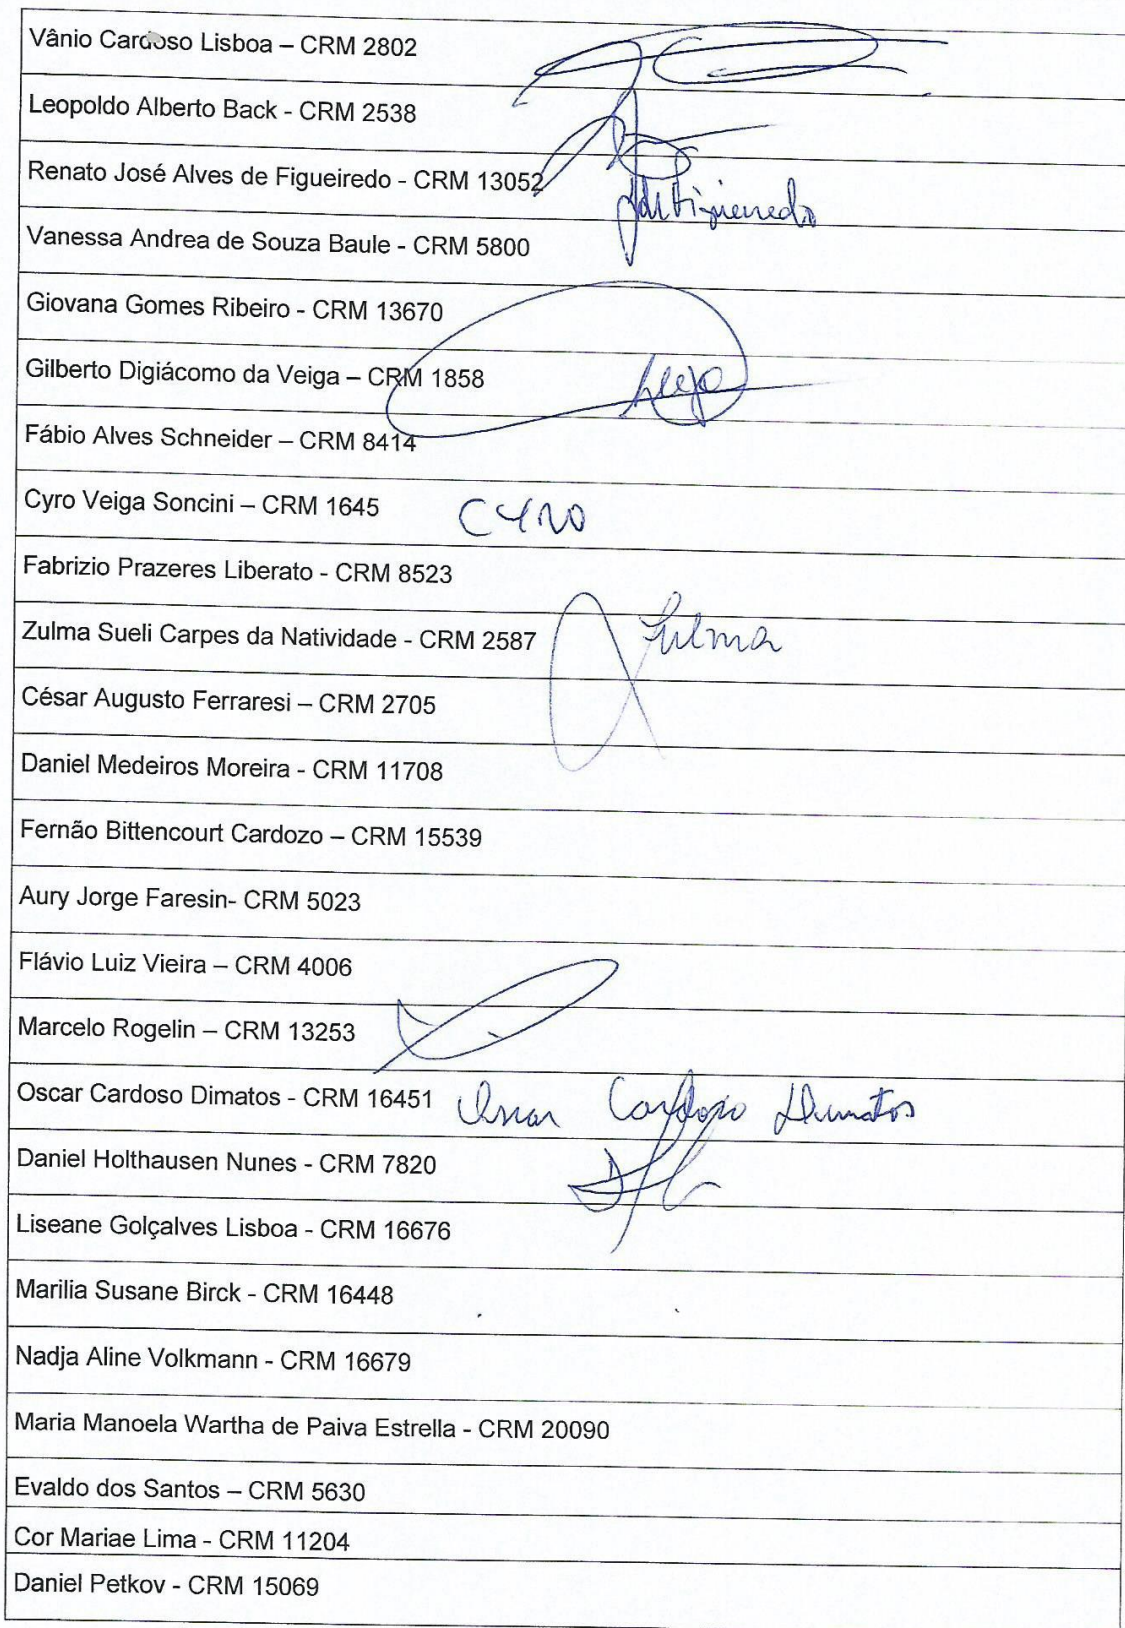 Vânio Cardoso Lisboa – CRM 2802
Leopoldo Alberto Back - CRM 2538
Renato José Alves de Figueiredo - CRM 13052
Figueiredo
Vanessa Andrea de Souza Baule - CRM 5800
Giovana Gomes Ribeiro - CRM 13670
Gilberto Digiácomo da Veiga – CRM 1858
Fábio Alves Schneider – CRM 8414
Cyro Veiga Soncini – CRM 1645 CYRO
Fabrizio Prazeres Liberato - CRM 8523
Zulma Sueli Carpes da Natividade - CRM 2587 Zulma
César Augusto Ferraresi – CRM 2705
Daniel Medeiros Moreira - CRM 11708
Fernão Bittencourt Cardozo – CRM 15539
Aury Jorge Faresin- CRM 5023
Flávio Luiz Vieira – CRM 4006
Marcelo Rogelin – CRM 13253
Oscar Cardoso Dimatos - CRM 16451 Oscar Cardoso Dimatos
Daniel Holthausen Nunes - CRM 7820
Liseane Golçalves Lisboa - CRM 16676
Marilia Susane Birck - CRM 16448
Nadja Aline Volkmann - CRM 16679
Maria Manoela Wartha de Paiva Estrella - CRM 20090
Evaldo dos Santos – CRM 5630
Cor Mariae Lima - CRM 11204
Daniel Petkov - CRM 15069